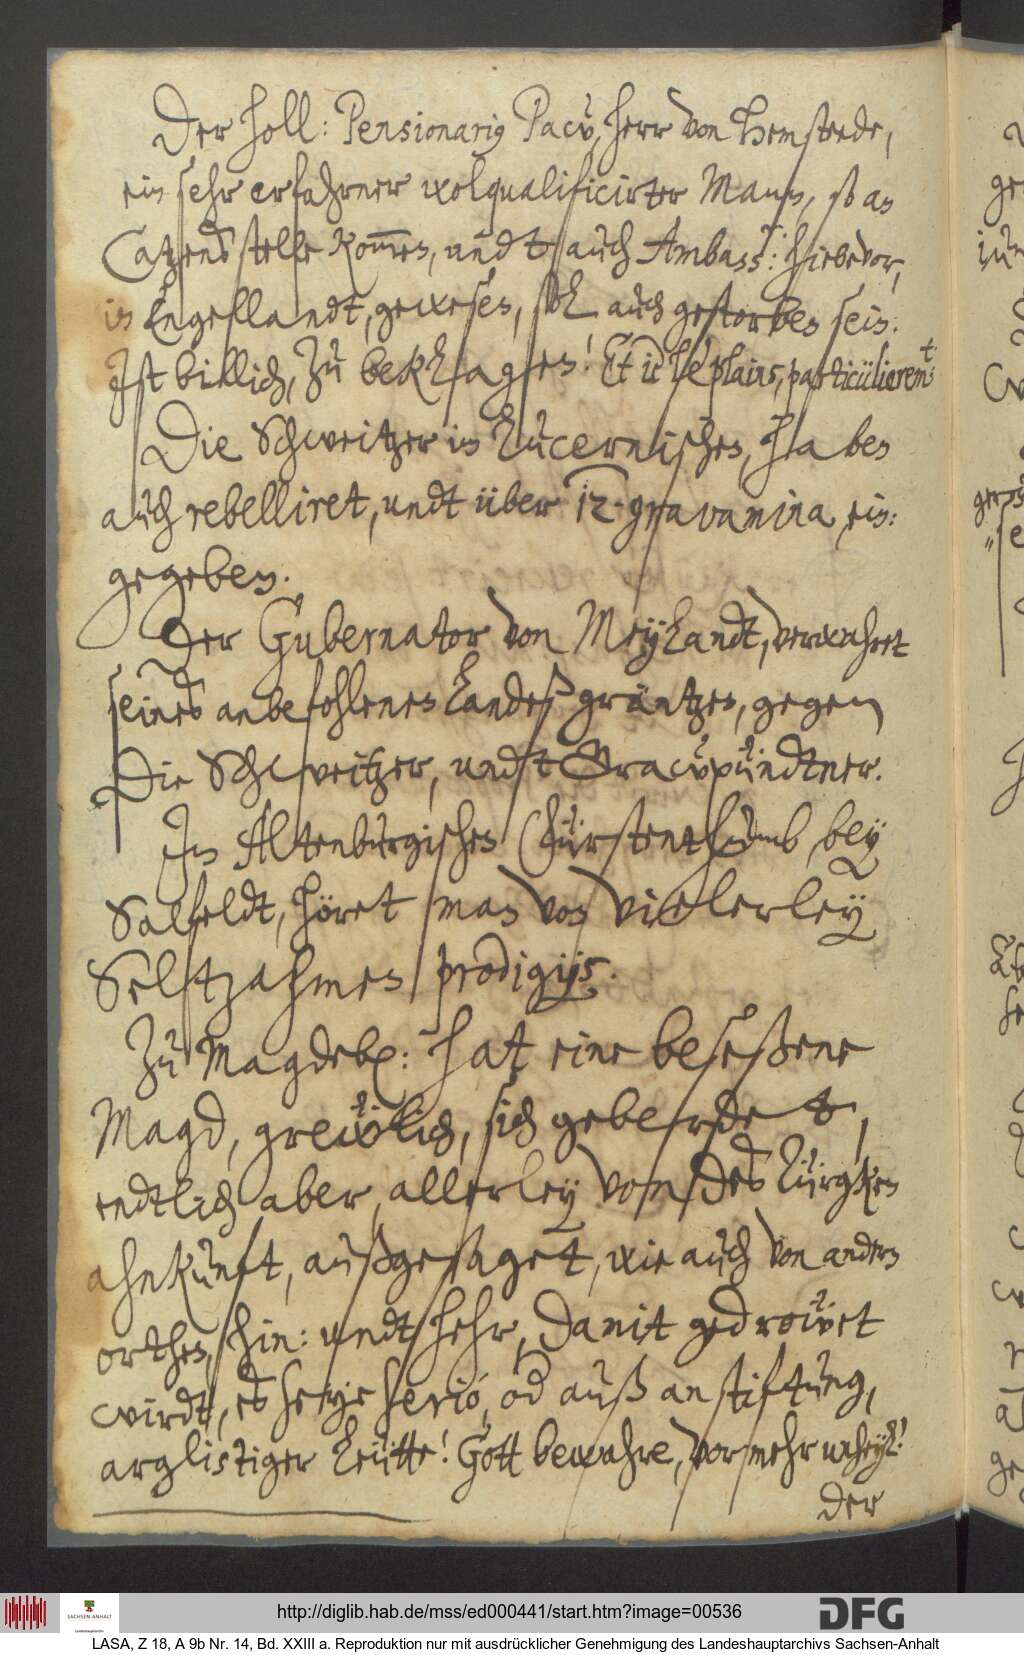 Der Holl: Pensionarig Pacŭ, Herr von Hemsteede,
ein sehr erfahrner wolqualificirter Mann, so an
Catzens stelle kom̅en, undt auch Ambass: hiebevor,
in Engellandt, gewesen, soll auch gestorben sein.
Ist billich, zu beklagen! Et ie le plains, particülierem:t
Die Schweitzer im Lucernischen, haben
auch rebelliret, undt über 12 gravamina, ein:
gegeben.
Der Gubernator von Meylandt, verwahret
seines anbefohlenen Landeß gräntzen, gegen
Die Schweitzer, undt Gracüpündtner.
Im Altenburgischen Fürstenthumb, bey
Salfeldt, höret man von vielerley
Seltzahmen prodigijs.
Zu Magdeb: hat eine beseßene
Magd, grewlich, sich geberdet,
endtlich aber, allerley von des Türgken
ahnkunft, außgesaget, wie auch von andern
orthen, hin: undt hehr, damit gedroẅet
wirdt, es seye serio, od auß anstiftung,
arglistiger Leütte! Gott bewahre, vor mehr unheyl!
der
http://diglib.hab.de/mss/ed000441/start.htm?image=00536
SACHSEN-ANHALT
DFG
LASA, Z 18, A 9b Nr. 14, Bd. XXIII a. Reproduktion nur mit ausdrücklicher Genehmigung des Landeshauptarchivs Sachsen-Anhalt